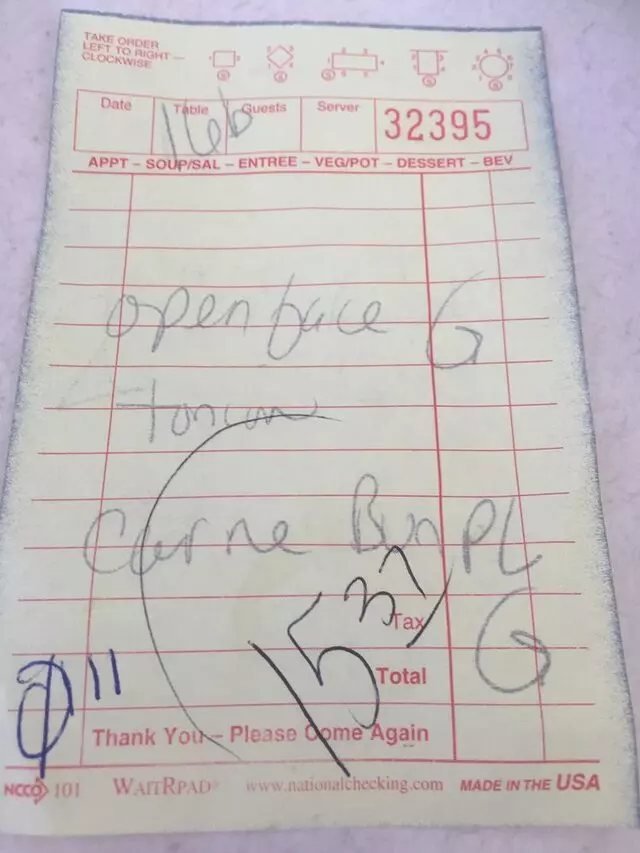 TAKE ORDER
LEFT TO RIGHT —
CLOCKWISE
Date Table Guests Server 32395
16b
APPT – SOUP/SAL – ENTREE – VEG/POT – DESSERT – BEV
open face G
Carne Bun PL
G
15 37
Tax
Total
Thank You – Please Come Again
NCCO 101 WAITRPAD® www.nationalchecking.com MADE IN THE USA